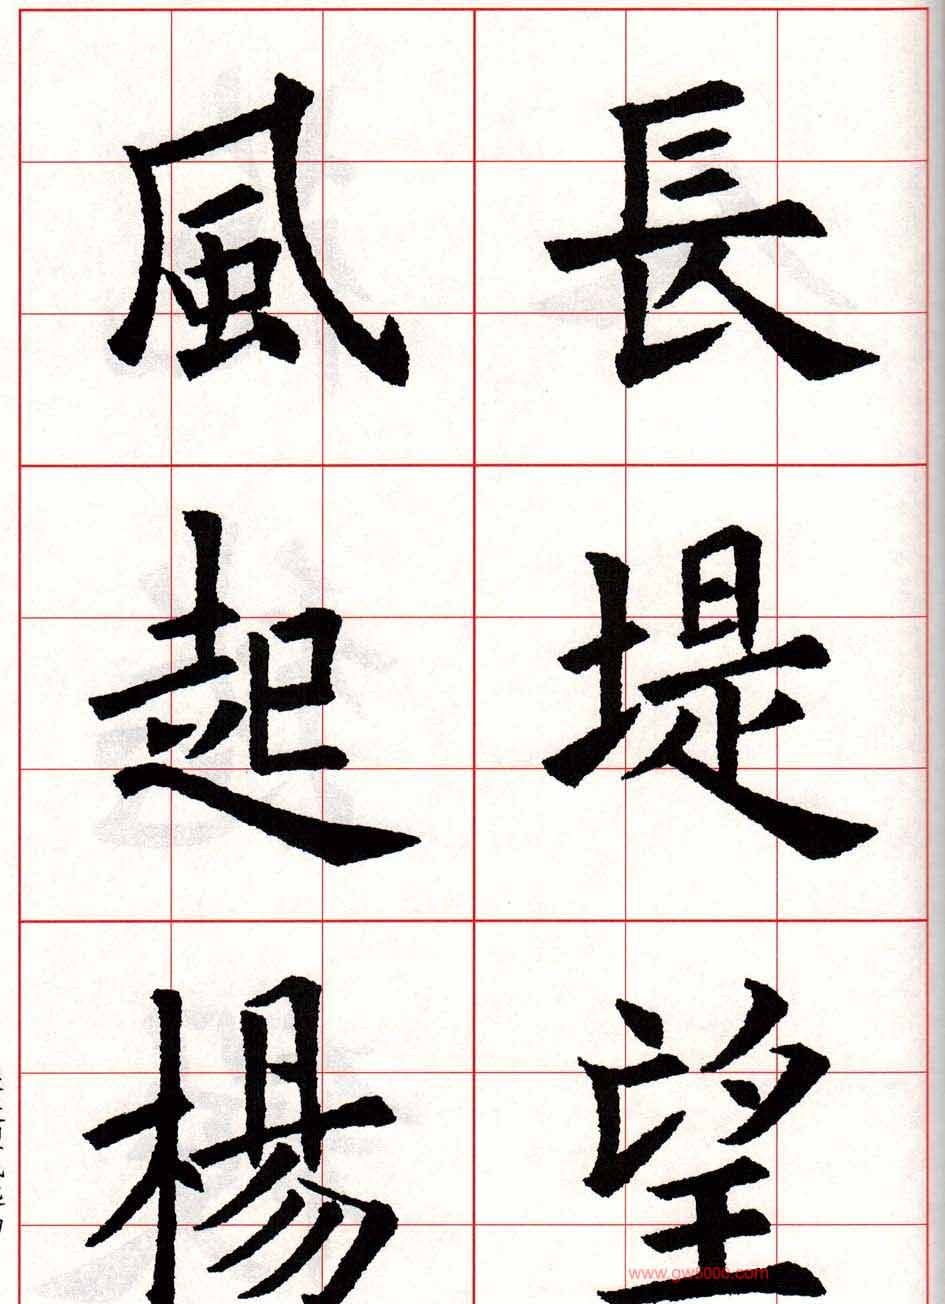 長堤望
風起楊
www.gw5000.com